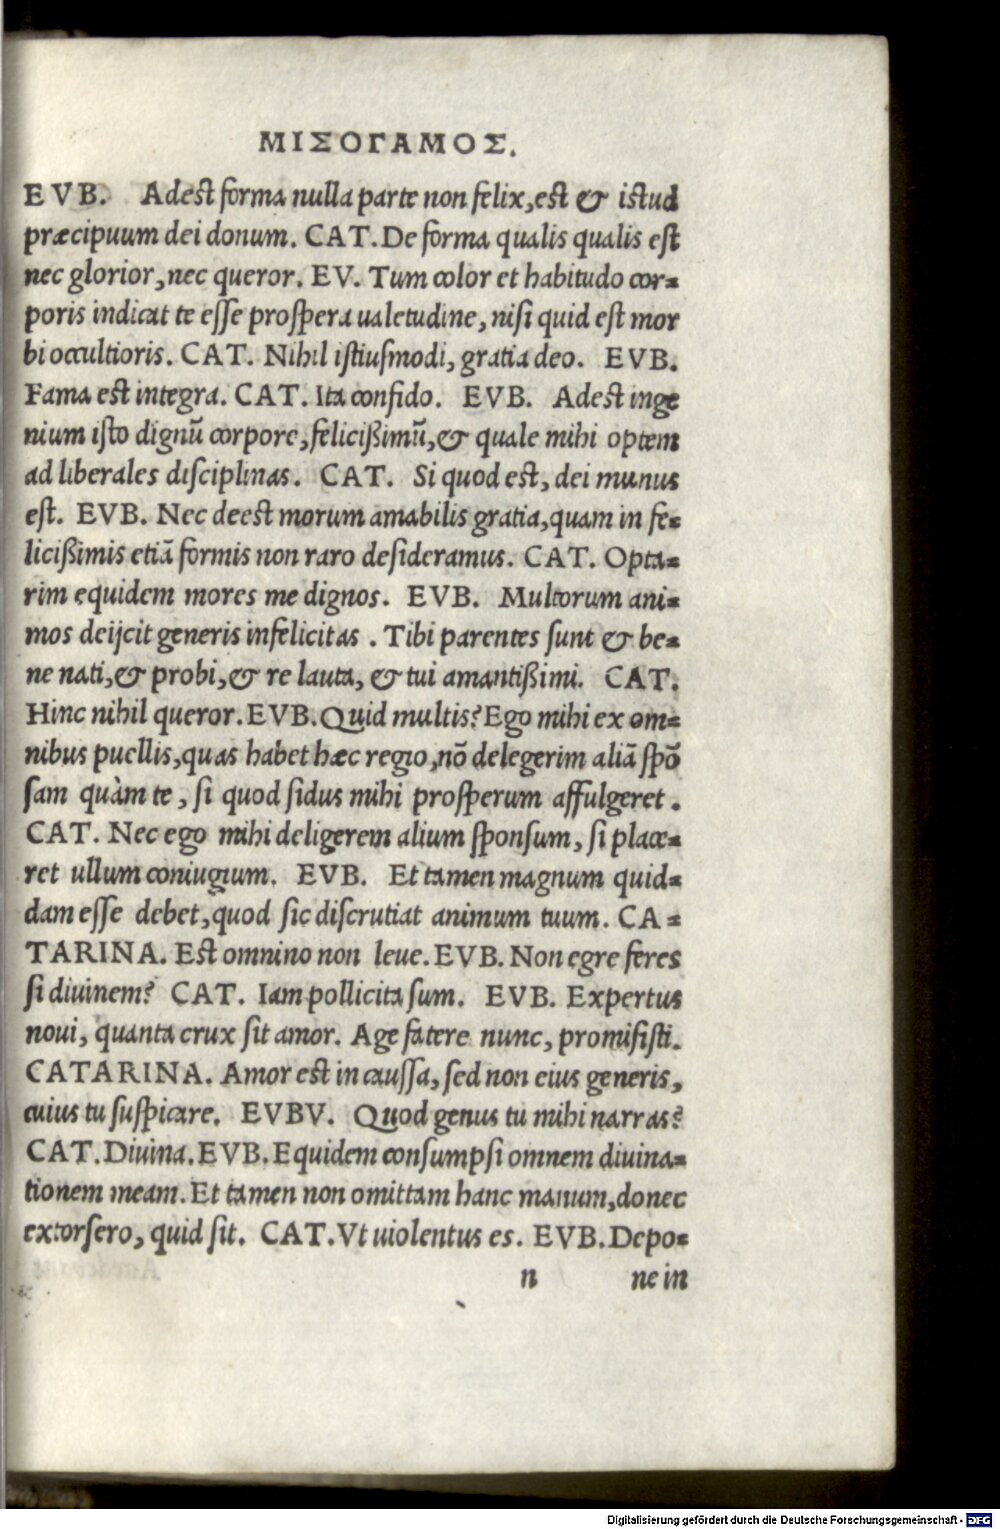 ΜΙΣΟΓΑΜΟΣ.
EVB. Adest forma nulla parte non felix,est & istud
præcipuum dei donum. CAT.De forma qualis qualis est
nec glorior,nec queror. EV. Tum color et habitudo cor-
poris indicat te esse prospera ualetudine, nisi quid est mor
bi occultioris. CAT. Nihil istiusmodi, gratia deo. EVB.
Fama est integra. CAT. Ita confido. EVB. Adest inge
nium isto dignũ corpore,felicißimũ,& quale mihi optem
ad liberales disciplinas. CAT. Si quod est, dei munus
est. EVB. Nec deest morum amabilis gratia,quam in fe-
licißimis etiã formis non raro desideramus. CAT. Opta-
rim equidem mores me dignos. EVB. Multorum ani-
mos deijcit generis infelicitas . Tibi parentes sunt & be-
ne nati,& probi,& re lauta, & tui amantißimi. CAT.
Hinc nihil queror.EVB.Quid multis?Ego mihi ex om-
nibus puellis,quas habet hæc regio,nõ delegerim aliã spõ
sam quàm te, si quod sidus mihi prosperum affulgeret.
CAT. Nec ego mihi deligerem alium sponsum, si place-
ret ullum coniugium. EVB. Et tamen magnum quid-
dam esse debet,quod sic discrutiat animum tuum. CA-
TARINA. Est omnino non leue.EVB.Non egre feres
si diuinem? CAT. Iam pollicita sum. EVB. Expertus
noui, quanta crux sit amor. Age fatere nunc, promisisti.
CATARINA. Amor est in caussa, sed non eius generis,
cuius tu suspicare. EVBV. Quod genus tu mihi narras?
CAT.Diuina.EVB.Equidem consumpsi omnem diuina-
tionem meam.Et tamen non omittam hanc manum,donec
extorsero, quid sit. CAT.Vt uiolentus es. EVB.Depo-
n ne in
Digitalisierung gefördert durch die Deutsche Forschungsgemeinschaft - DFG